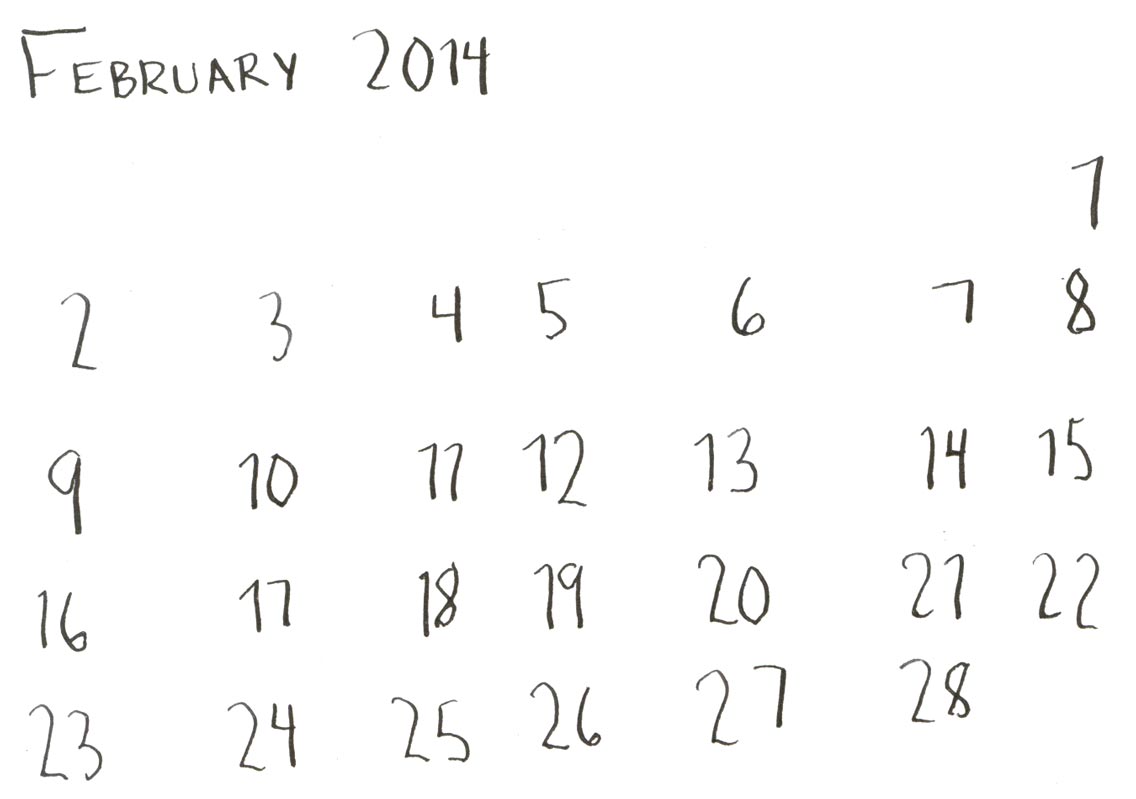 FEBRUARY 2014
1
2 3 4 5 6 7 8
9 10 11 12 13 14 15
16 17 18 19 20 21 22
23 24 25 26 27 28